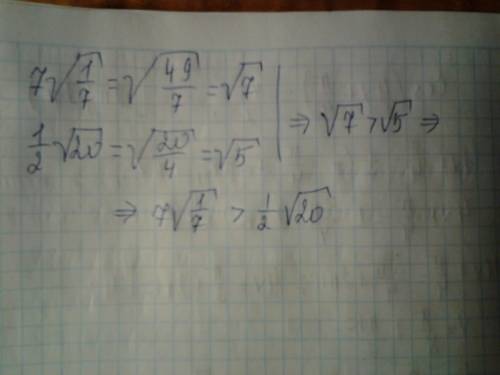 7√(1/7) = √(49/7) = √7
1/2 √20 = √(20/4) = √5 | ⇒ √7 > √5 ⇒
⇒ 7√(1/7) > 1/2 √20